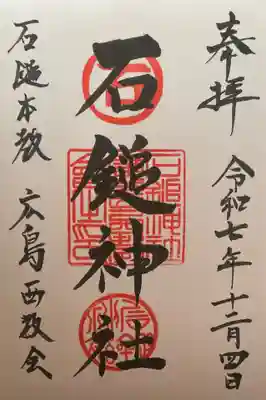 奉拝
令和七年十二月四日
石鎚神社
石鎚本教 広島西教会